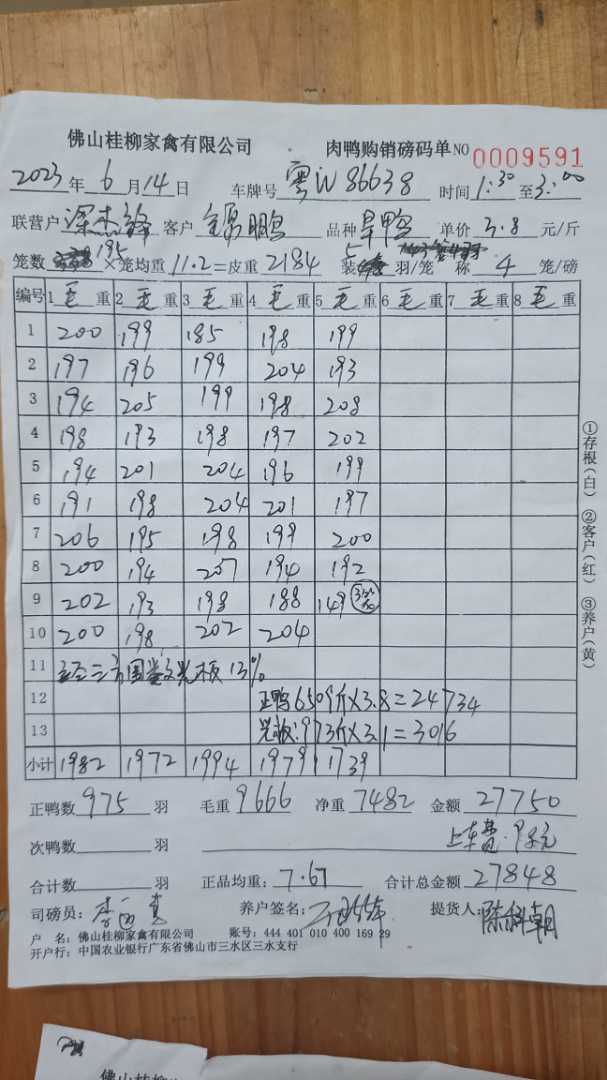 佛山桂柳家禽有限公司 肉鸭购销磅码单 NO 0009591
2023年6月14日 车牌号 粤W86638 时间1:30至3:00
联营户 客户 鹏 品种 旱鸭 单价 3.8 元/斤
笼数 195 ×笼均重 11.2=皮重 2184 装 5 羽/笼 称 4 笼/磅
编号 1 毛 重 2 毛 重 3 毛 重 4 毛 重 5 毛 重 6 毛 重 7 毛 重 8 毛 重
1 200 199 185 198 199
2 197 196 199 204 193
3 194 205 199 198 208
4 198 193 198 197 202
5 194 201 204 196 199
6 191 198 204 201 197
7 206 195 198 199 200
8 200 194 207 194 192
9 202 193 198 188 149 3笼
10 200 198 202 204
11 光板13%
12 正鸭6509斤×3.8=24734
13 光板:973斤×3.1=3016
小计 1982 1972 1994 1979 1739
正鸭数 975 羽 毛重 9666 净重 7482 金额 27750
次鸭数 羽 上车费:98元
合计数 羽 正品均重: 7.67 合计总金额 27848
司磅员: 李 养户签名: 提货人: 陈科朝
户 名: 佛山桂柳家禽有限公司 账号: 444 401 010 400 169 29
开户行: 中国农业银行广东省佛山市三水区三水支行
①存根(白) ②客户(红) ③养户(黄)
佛山桂柳